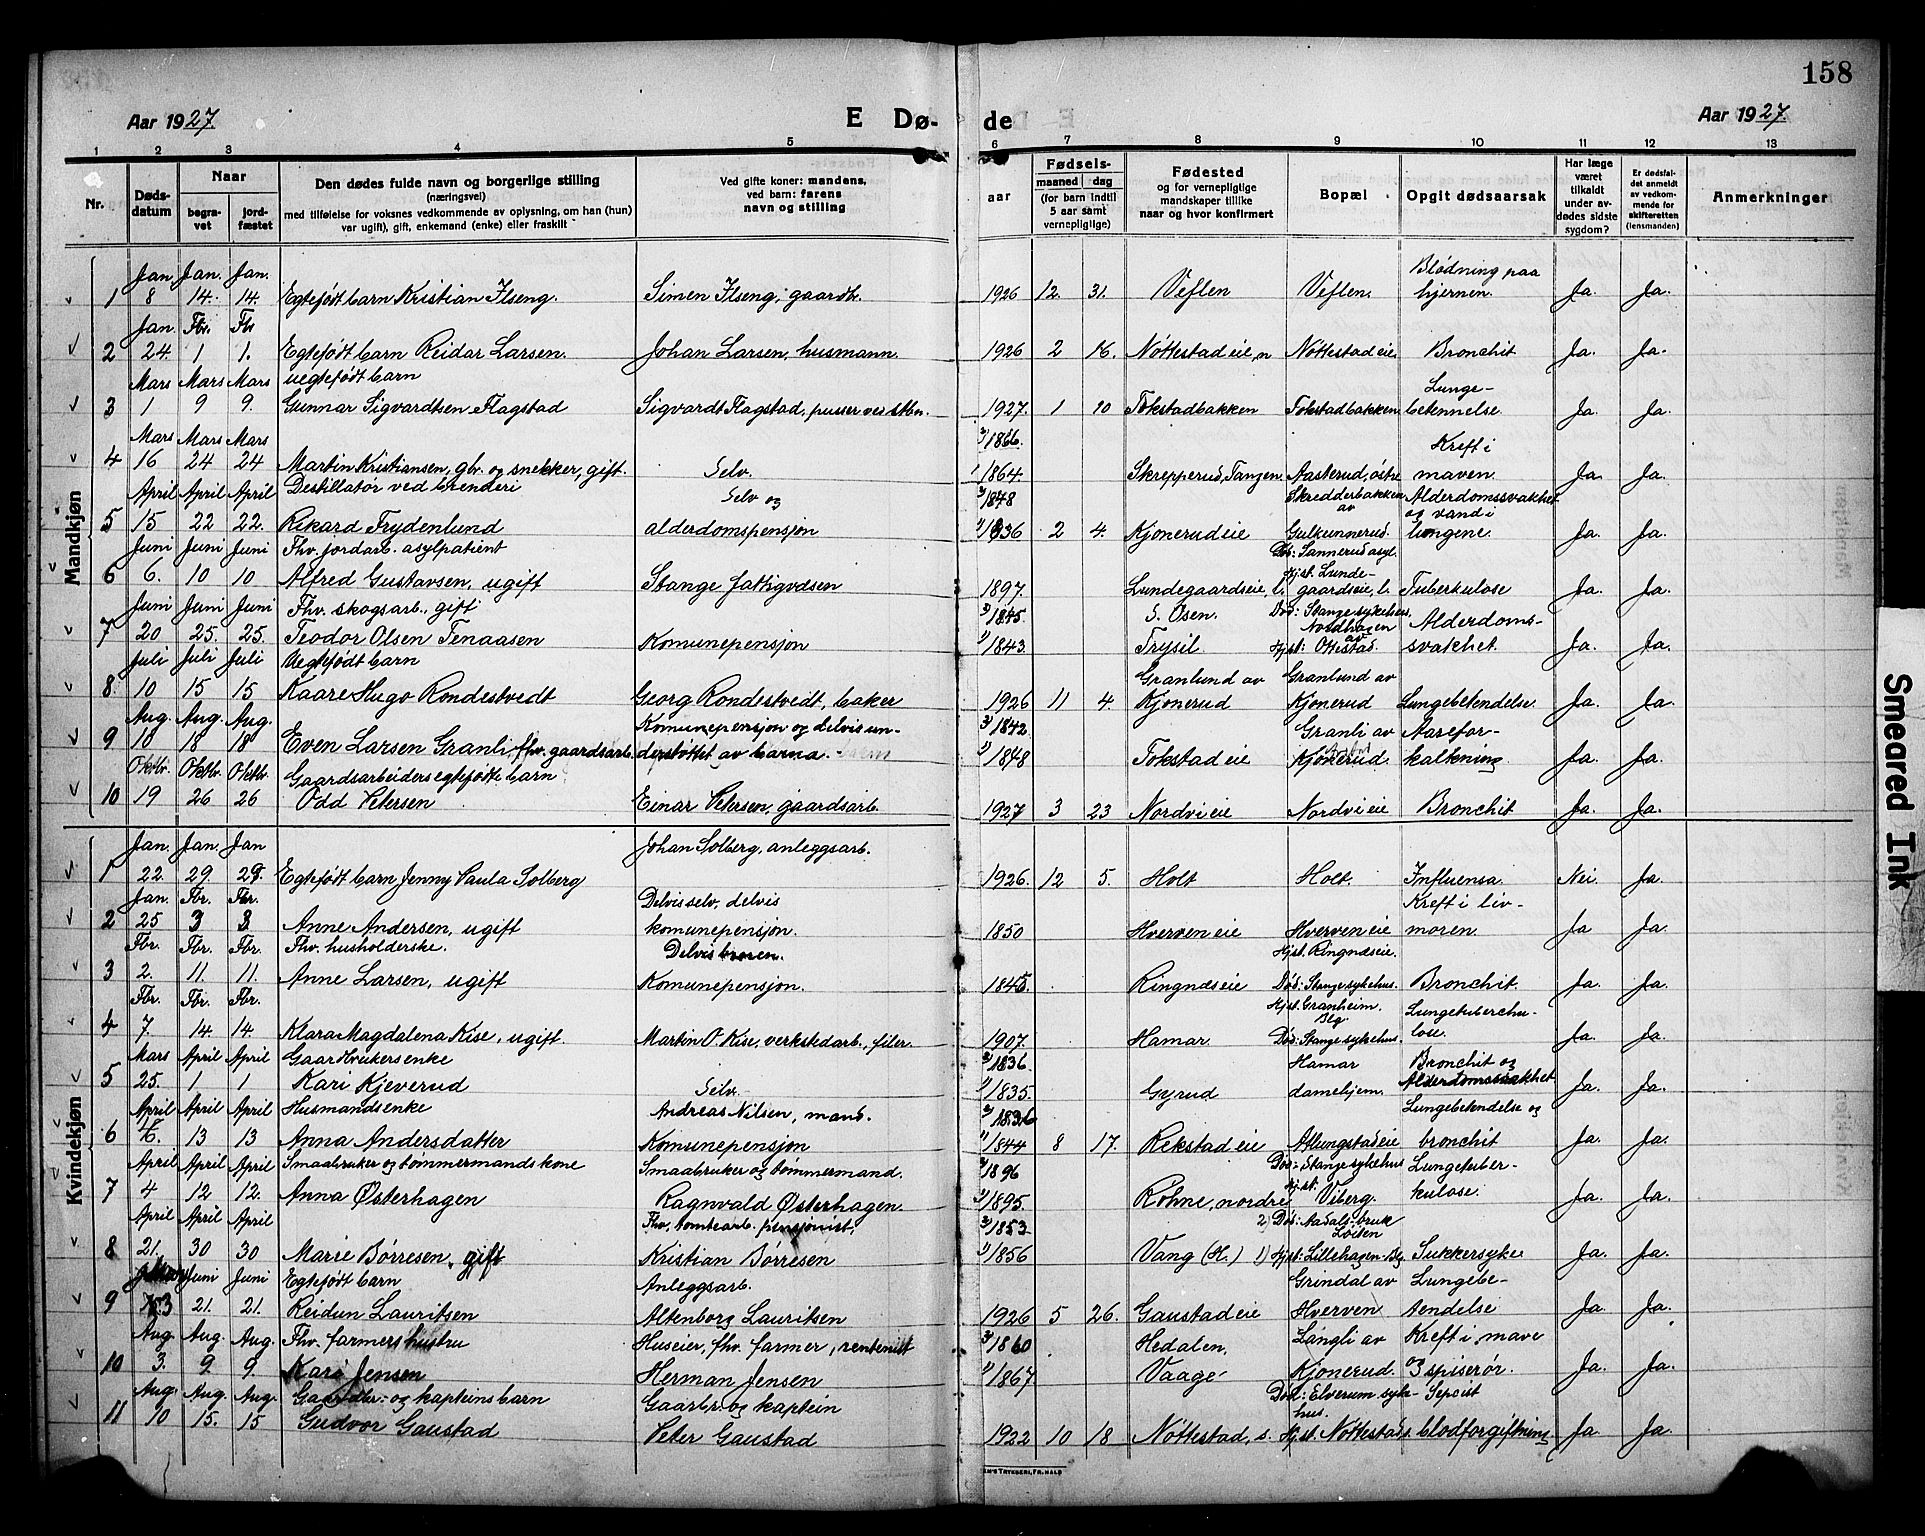 158
Aar 1927.
E Dø-
de
Aar 1927.
1 2 3 4 5 6 7 8 9 10 11 12 13
Nr.
Døds-
datum
Naar
begra-
vet
jord-
fæstet
Den dødes fulde navn og borgerlige stilling
(næringsvei)
med tilføielse for voksnes vedkommende av oplysning, om han (hun)
var ugift), gift, enkemand (enke) eller fraskilt
Ved gifte koner: mandens,
ved barn: farens
navn og stilling
aar
Fødsels-
maaned dag
(for barn indtil
5 aar samt
vernepligtige)
Fødested
og for vernepligtige
mandskaper tillike
naar og hvor konfirmert
Bopæl
Opgit dødsaarsak
Har læge
været
tilkaldt
under av-
dødes sidste
sygdom?
Er dødsfal-
det anmeldt
av vedkom-
mende for
skifteretten
(lensmanden)
Anmerkninger
Mandkjøn
Jan. Jan. Jan. Blødning paa
1 8 14. 14. Egtefødt barn Kristian Ilseng. Simen Ilseng, gaardb. 1926 12. 31. Veflen Veflen. hjernen. Ja. Ja.
Jan. Fbr. Fbr
2 24 1 1. Egtefødt barn Reidar Larsen. Johan Larsen, husmann. 1926 2 16. Nøttestadeie, n Nøttestadeie Bronchit Ja. Ja.
Mars Mars Mars uegtefødt barn Lunge-
3 1 9 9. Gunnar Sigvardtsen Flagstad Sigvardt Flagstad, pusser ved stbn. 1927. 1 10 Tokstadbakken Tokstadbakken betennelse. Ja. Ja.
Mars Mars Mars 2/1866. Kreft i
4 16 24 24 Martin Kristiansen, gbr. og snekker, gift. Selv. 1864 Skrepperud, Tangen. Aasterud, østre maven Ja. Ja.
April April April Destillatør ved brenderi Selv og 2/1848 Skredderbakken av Alderdomssvakhet og vand i
5 15 22 22. Rikard Frydenlund alderdomspensjon 1/1836 2 4. Kjonerudeie Gulkunnerud. lungene. Ja. Ja.
Juni Juni Juni Fhv. jordarb. asylpatient Død: Sannerud asyl.
6 6. 10 10 Alfred Gustavsen, ugift Stange fattigvæsen 1897. Lundegaardseie, l. Hjst. Lunde-
gaardseie, l. Tuberkulose Ja. Ja.
Juni Juni Juni Fhv. skogsarb., gift 2/1845. S. Osen. Død: Stange sykehus. Alderdoms-
7 20 25. 25. Teodor Olsen Tenaasen Komunepensjon 1/1843. Trysil. Hjst: Nordhagen av Ottestad. svakhet. Ja. Ja.
Juli Juli Juli Uegtefødt barn Granlund av Granlund av
8. 10 15 15 Kaare Hugo Rondestvedt Georg Rondestvedt, baker 1926 11 4. Kjonerud Kjonerud Lungebetendelse. Ja. Ja.
Aug. Aug. Aug. Komunepensjon og delvis un- 2/1842. Granli av Aarefor-
9 10 18 18 Even Larsen Granli, fhv. gaardsarb. derstøttet av barna. 1/1848 Tokstadeie Kjonerud. kalkning Ja. Ja.
Oktbr. Oktbr. Oktbr. Gaardsarbeiders egtefødte barn
10 19 26 26 Odd Petersen Einar Petersen, gaardsarb. 1927 3 23 Nordvieie Nordvieie Bronchit Ja. Ja.
Kvindekjøn
Jan. Jan. Jan Johan Solberg, anleggsarb.
1 22. 29. 29. Egtefødt barn Jenny Paula Solberg 1926. 12 5. Holt Holt. Influensa. Nei. Ja.
Jan. Fbr. Fbr. Delvis selv, delvis Kreft i liv-
2 25 3 3. Anne Andersen, ugift komunepensjon. 1850 Hverveneie Hverveneie moren. Ja Ja.
Fbr. Fbr. Fbr. Fhv. husholderske. Delvis broren. Hjst. Ringnæseie.
3 2. 11. 11. Anne Larsen, ugift Komunepensjon. 1845. Ringnæseie Død: Stange sykehus. Bronchit. Ja. Ja.
Fbr. Fbr. Fbr. Hjst. Granheim. Blg Lungetuberku-
4 7. 14 14. Klara Magdalena Kise, ugift. Martin O. Kise, verkstedarb., filer. 1907. Hamar Død: Stange sykehus. lose. Ja. Ja.
Mars April April Gaardbrukersenke 2/1836. Hamar Bronchit og
5 25. 1 1 Kari Kjeverud Selv. 1/1835. Gyrud damehjem. Alderdomssvakhet Ja. Ja.
April April April Husmandsenke Andreas Nilsen, mand. 2/1836 Lungebetendelse og
6 6. 13 13 Anna Andersdatter Komunepensjon 1/1844 8 17. Rekstadeie Atlungstadeie bronchit Ja. Ja.
April April April Smaabruker og tømmermands kone Smaabruker og tømmermand. 2/1896 Død: Stange sykehus Lungetuber-
7 4 12 12. Anna Østerhagen Ragnvald Østerhagen. 1/1895. Røhne, nordre Hjst. Viberg. kulose. Ja. Ja.
April April April Fhv. tomtearb. pensjonist, 2/1853 2) Død: Aadals-bruk Løiten
8 21. 30 30 Marie Børresen, gift Kristian Børresen 1/1856 Vang (H.) 1) Hjst: Lillehagen. Blg Sukkersyke Ja. Ja.
Juni Juni Egtefødt barn Anleggsarb. Grindal av Lungebe-
9 21. 21. Reidun Lauritsen Altenborg Lauritsen 1926 5 26. Gaustadeie Hverven tendelse Ja Ja.
Aug. Aug. Aug. Fhv. farmers hustru Huseier, fhv. farmer, rentenist 2/1860 Hedalen, Langli av Kreft i mave
10 3. 9 9. Kari Jensen Herman Jensen 1/1867 Vaage Kjonerud. og spiserør. Ja. Ja.
Aug. Aug. Aug. Gaardbr.- og kapteins barn Gaarbr. og kaptein Død: Elverum syke- Sepsist
hus.
11 10 15. 15 Gudvor Gaustad Peter Gaustad 1922 10 18 Nøttestad, s. Hjst. Nøttestad s. blodforgiftning Ja. Ja.
Smeared Ink